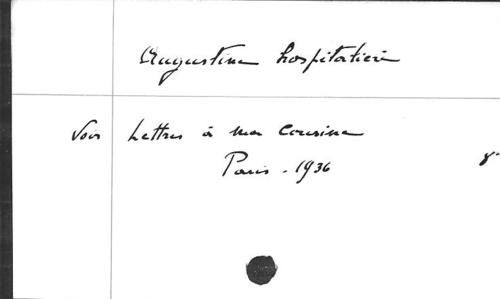 Augustine hospitalière
Voir Lettres à ma Cousine
Paris - 1936 8°